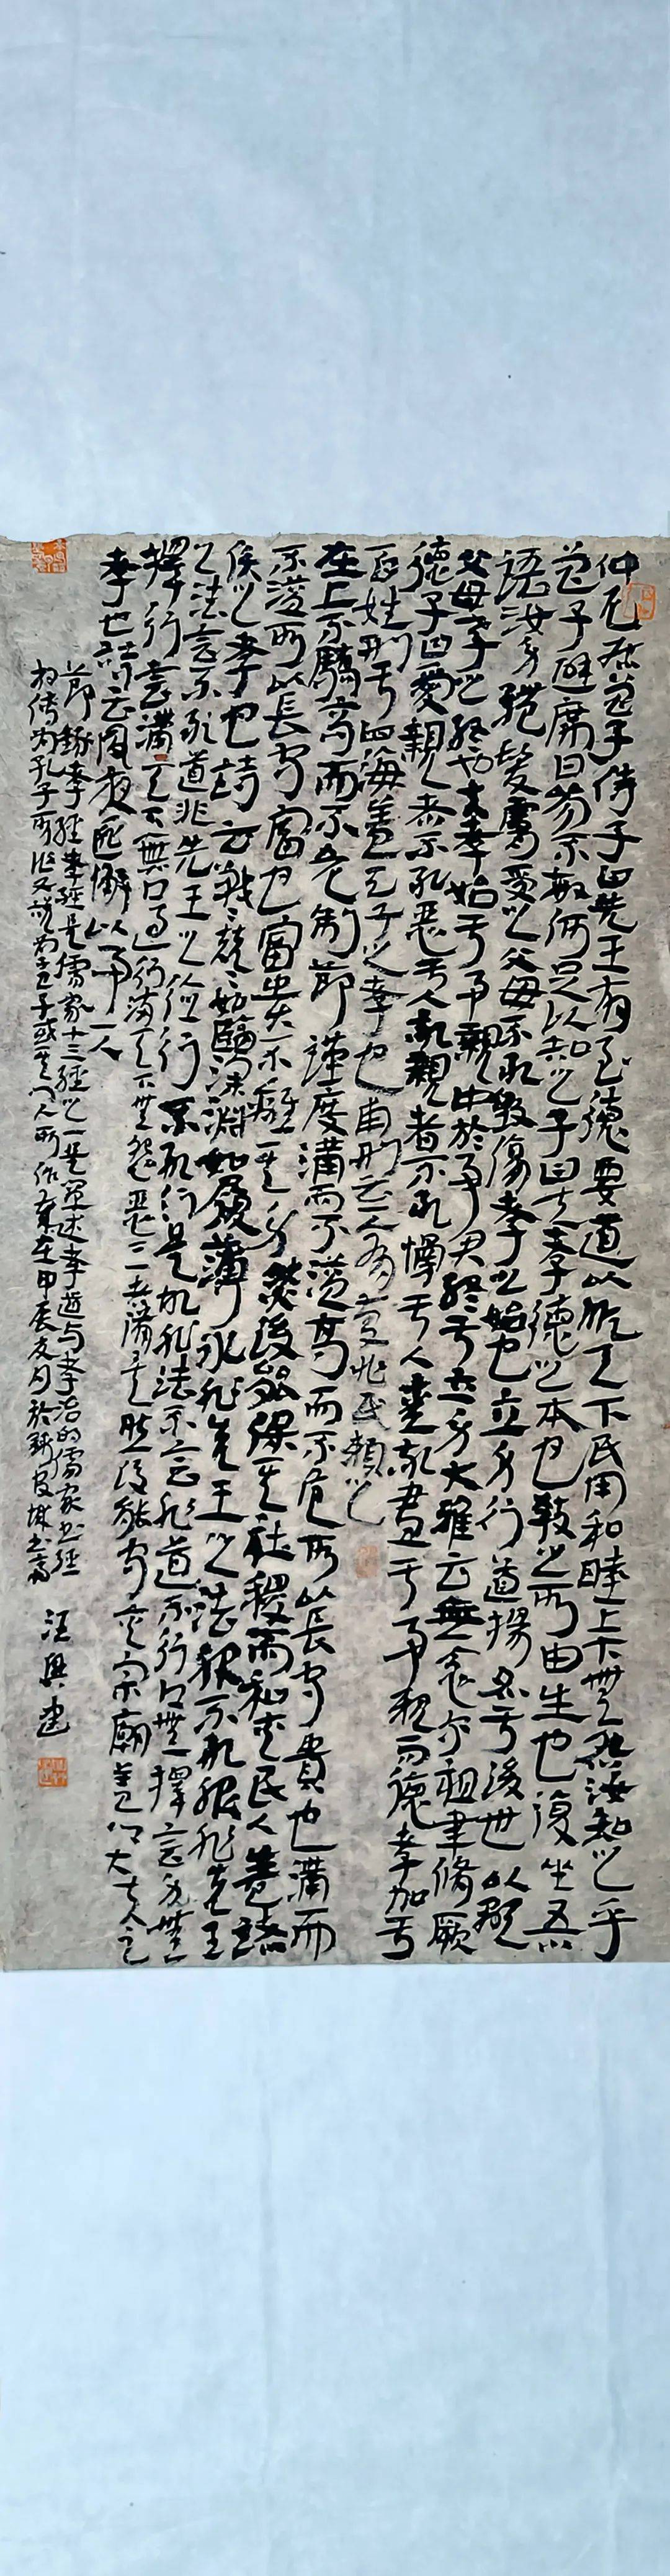 仲尼居曾子侍子曰先王有至德要道以順天下民用和睦上下無怨汝知之乎
曾子避席曰參不敏何足以知之子曰夫孝德之本也教之所由生也復坐吾
語汝身體髮膚受之父母不敢毀傷孝之始也立身行道揚名于後世以顯
父母孝之終也夫孝始于事親中於事君終于立身大雅云無念爾祖聿修厥
德子曰愛親者不敢惡于人敬親者不敢慢于人愛敬盡于事親而德孝加于
百姓刑于四海蓋天子之孝也甫刑云一人有慶兆民賴之
在上不驕高而不危制節謹度滿而不溢高而不危所以長守貴也滿而
不溢所以長守富也富貴不離其身然後能保其社稷而和其民人蓋諸
侯之孝也詩云戰戰兢兢如臨深淵如履薄冰非先王之法服不敢服非先王
之法言不敢道非先王之德行不敢行是故非法不言非道不行口無擇言身無
擇行言滿天下無口過行滿天下無怨惡三者備矣然後能守其宗廟蓋卿大夫之
孝也詩云夙夜匪懈以事一人
節錄孝經孝經是儒家十三經之一是闡述孝道与孝治的儒家经
相传为孔子所作又说为曾子或其门人所作 在甲辰 月於
汪興建